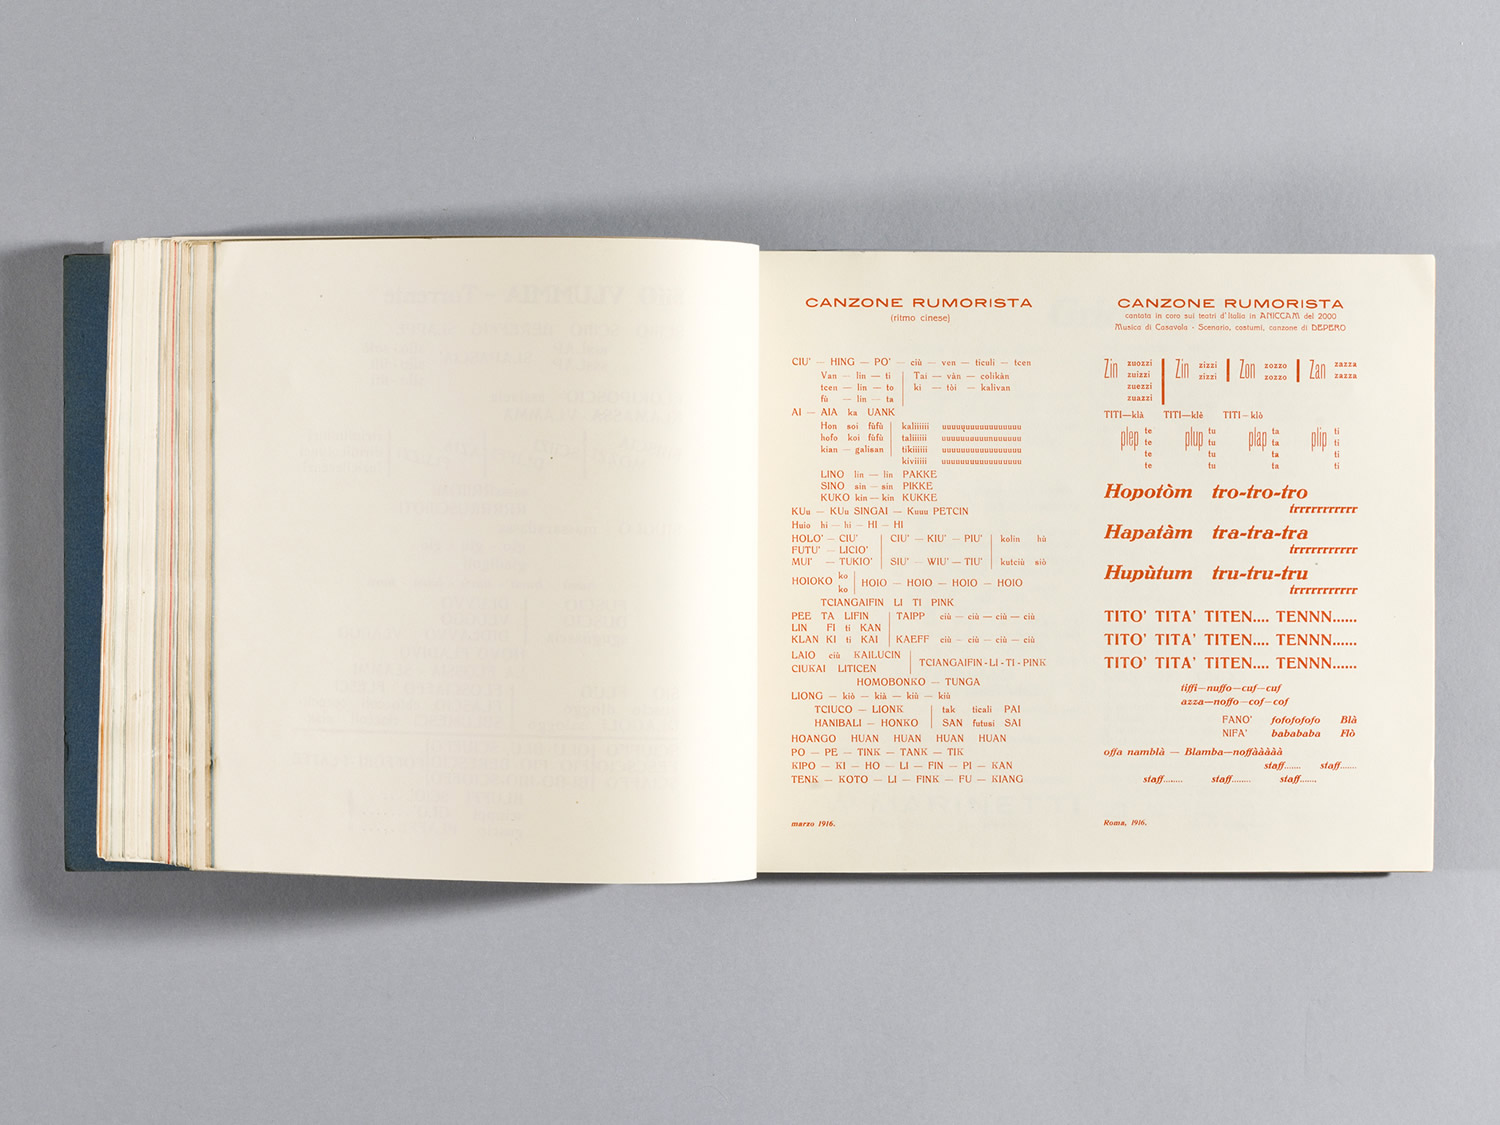 CANZONE RUMORISTA
(ritmo cinese)
CIU' — HING — PO' — ciù — ven — ticuli — tcen
Van — lin — ti | Tai — vàn — colikàn
tcen — lin — to | ki — tòi — kalivan
fù — lin — ta
AI — AIA ka UANK
Hon soi fùfù | kaliiiiii uuuuuuuuuuuuuuuuu
hofo koi fùfù | taliiiiii uuuuuuuuuuuuuuuuu
kian — galisan | tikiiiiii uuuuuuuuuuuuuuuuu
kiviiiii uuuuuuuuuuuuuuuuu
LINO lin — lin PAKKE
SINO sin — sin PIKKE
KUKO kin — kin KUKKE
KUu — KUu SINGAI — Kuuu PETCIN
Huio hi — hi — HI — HI
HOLO' — CIU' | CIU' — KIU' — PIU' | kolin hù
FUTU' — LICIO'
MUI' — TUKIO' | SIU' — WIU' — TIU' | kutciù siò
HOIOKO ko | HOIO — HOIO — HOIO — HOIO
ko
TCIANGAIFIN LI TI PINK
PEE TA LIFIN | TAIPP ciù — ciù — ciù — ciù
LIN FI ti KAN
KLAN KI ti KAI | KAEFF ciù — ciù — ciù — ciù
LAIO ciù KAILUCIN | TCIANGAIFIN - LI - TI - PINK
CIUKAI LITICEN
HOMOBONKO — TUNGA
LIONG — kiò — kià — kiù — kiù
TCIUCO — LIONK | tak ticali PAI
HANIBALI — HONKO | SAN futusi SAI
HOANGO HUAN HUAN HUAN HUAN
PO — PE — TINK — TANK — TIK
KIPO — KI — HO — LI — FIN — PI — KAN
TENK — KOTO — LI — FINK — FU — KIANG
marzo 1916.
CANZONE RUMORISTA
cantata in coro sui teatri d'Italia in ANICCAM del 2000
Musica di Casavola - Scenario, costumi, canzone di DEPERO
Zin zuozzi | Zin zizzi | Zon zozzo | Zan zazza
zuizzi zizzi zozzo zazza
zuezzi
zuazzi
TITI—klà TITI—klè TITI—klò
plep te plup tu plap ta plip ti
te tu ta ti
te tu ta ti
te tu ta ti
Hopotòm tro-tro-tro
trrrrrrrrrrr
Hapatàm tra-tra-tra
trrrrrrrrrrr
Hupùtum tru-tru-tru
trrrrrrrrrrr
TITO' TITA' TITEN.... TENNN......
TITO' TITA' TITEN.... TENNN......
TITO' TITA' TITEN.... TENNN......
tiffi—nuffo—cuf—cuf
azza—noffo—cof—cof
FANO' fofofofofo Blà
NIFA' babababa Flò
offa namblà — Blamba—noffààààà
staff....... staff.......
staff........ staff........ staff.......
Roma, 1916.